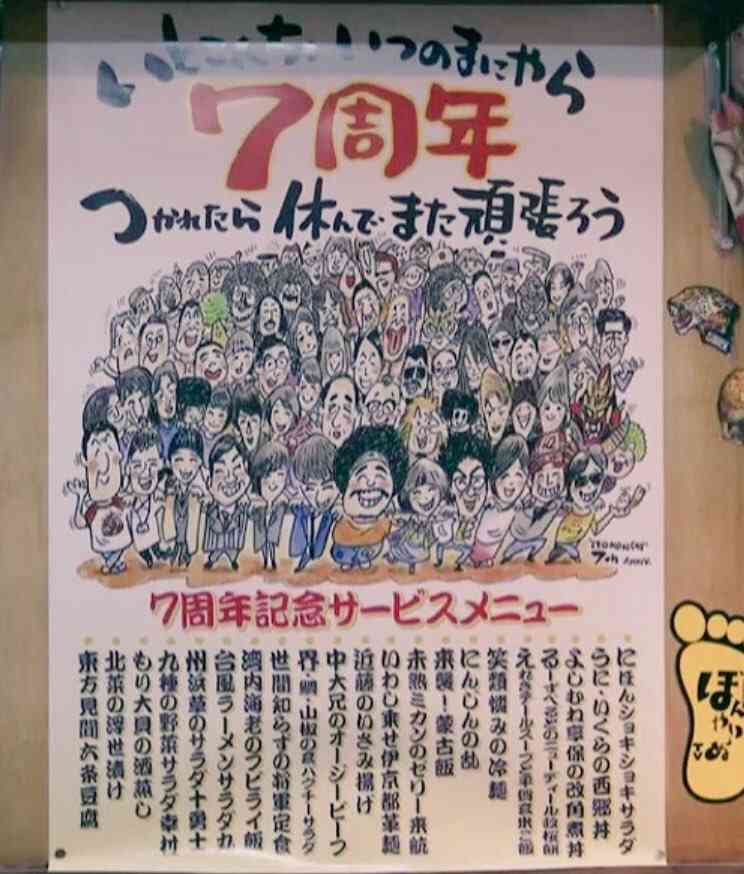 いとこんち いつのまにやら
7周年
つかれたら 休んで また頑張ろう
ITOKONCHI
7th ANNIV.
7周年記念サービスメニュー
にほんショキショキサラダ
うに・いくらの西郷丼
よしむね享保の改角煮丼
るーずべるとのニューディール政桜餅
テールスープと
笑類憐みの冷麺
にんじんの乱
来襲!蒙古飯
未熟ミカンのゼリー来航
いわし乗せ伊京都革麺
近藤のいさみ揚げ
中大兄のオージービーフ
鯛・山椒の
世間知らずの将軍定食
湾内海老のフビライ飯
台風ラーメンサラダ九
州浜草のサラダ十勇士
九種の野菜サラダ幸村
もり大貝の酒蒸し
北菜の浮世漬け
東方見聞六条豆腐